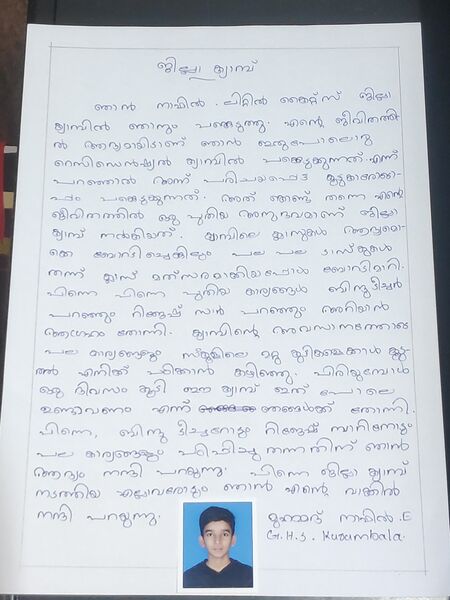 ജില്ലാ ക്യാമ്പ്
ഞാൻ നാഫിൽ. ലിറ്റിൽ കൈറ്റ്സ് ജില്ലാ
ക്യാമ്പിൽ ഞാനും പങ്കെടുത്തു. എന്റെ ജീവിതത്തി
ൽ ആദ്യമായിട്ടാണ് ഞാൻ ഇതുപോലൊരു
റെസിഡെൻഷ്യൽ ക്യാമ്പിൽ പങ്കെടുക്കുന്നത് എന്ന്
പറഞ്ഞാൽ അന്ന് പരിചയപ്പെട്ട കൂട്ടുകാരോടൊ
പ്പം പങ്കെടുക്കുന്നത്. അത് കൊണ്ട് തന്നെ എന്റെ
ജീവിതത്തിൽ ഒരു പുതിയ അനുഭവമാണ് ജില്ലാ
ക്യാമ്പ് നൽകിയത്. ക്യാമ്പിലെ ക്ലാസുകൾ ആദ്യമൊ
ക്കെ ബോറടിച്ചെങ്കിലും പല പല ടാസ്കുകൾ
തന്ന് ക്ലാസ് മത്സരമാക്കിയപ്പോൾ ബോറടിമാറി.
പിന്നെ പിന്നെ പുതിയ കാര്യങ്ങൾ ബിന്ദുടീച്ചർ
പറഞ്ഞും റിങ്കേഷ് സാർ പറഞ്ഞും അറിയാൻ
ആഗ്രഹം തോന്നി. ക്യാമ്പിന്റെ അവസാനത്തോടെ
പല കാര്യങ്ങളും സ്കൂളിലെ മറ്റു കുട്ടികളെക്കാൾ കൂടു
തൽ എനിക്ക് പഠിക്കാൻ കഴിഞ്ഞു. പിരിയുമ്പോൾ
ഒരു ദിവസം കൂടി ഈ ക്യാമ്പ് ഇത് പോലെ
ഉണ്ടാവണം എന്ന് ഞങ്ങൾക്ക് തോന്നി.
പിന്നെ, ബിന്ദു ടീച്ചറോടും റിങ്കേഷ് സാറിനോടും
പല കാര്യങ്ങളും പഠിപ്പിച്ചു തന്നതിന് ഞാൻ
ആദ്യം നന്ദി പറയുന്നു. പിന്നെ ജില്ലാ ക്യാമ്പ്
നടത്തിയ എല്ലാവരോടും ഞാൻ എന്റെ വാക്കിൽ
നന്ദി പറയുന്നു.
മുഹമ്മദ് നാഫിൽ. E
G.H.S. Kurumbala.